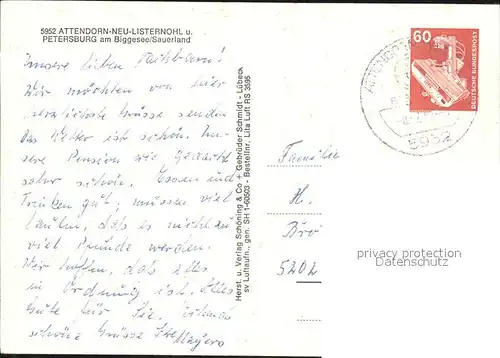 5952 ATTENDORN-NEU-LISTERNOHL u.
PETERSBURG am Biggesee/Sauerland
Unsere lieben
Wir möchten von hier
herzlichste Grüsse senden
Das Wetter ist schön. Un-
sere Pension wie gedacht
sehr schön. Essen und
Trinken gut, müssen viel
laufen, daß es nicht zu
viel Pfunde werden.
Wir hoffen, daß alles
in Ordnung ist. Alles
Gute für Sie. Und
schöne Grüsse Ihre Mayers
Herst. u. Verlag Schöning & Co + Gebrüder Schmidt - Lübeck
sv Luftaufn., gen. SH 1-60503 - Bestellnr. Lila Luft RS 3595
60
DEUTSCHE BUNDESPOST
ATTENDORN
5952
Familie
H.
Brö
5202
privacy protection
Datenschutz